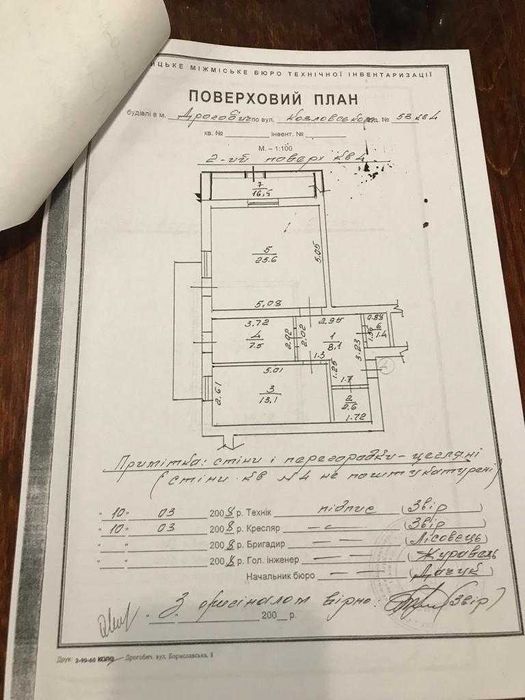 ИЦЬКЕ МІЖМІСЬКЕ БЮРО ТЕХНІЧНОЇ ІНВЕНТАРИЗАЦІЇ
ПОВЕРХОВИЙ ПЛАН
будівлі в м. Дрогобич по вул. Козловського № 5В кв 4
кв. № інвент. №
М. – 1:100
2-ий поверх кв 4
7
16,5
5
25.6
5.05
5.08
3.72
2.95
0.88
4
7.5
2.92
2.02
1
8,1
3.23
1.59
6
1.4
5.01
1.5
1.25
1.7
3
13,1
2.61
2
2.6
1.72
Примітка: стіни і перегородки – цегляні
(стіни кв №4 не поштукатурені)
" 10 " 03 2008 р. Технік підпис (Звір)
" 10 " 03 2008 р. Кресляр –"– (Звір)
" " 2008 р. Бригадир (Лісовець)
" " 2008 р. Гол. інженер (Журавель)
Начальник бюро
З оригіналом вірно: (Звір)
200 р.
Друк. Дрогобич. вул. Бориславська, 8